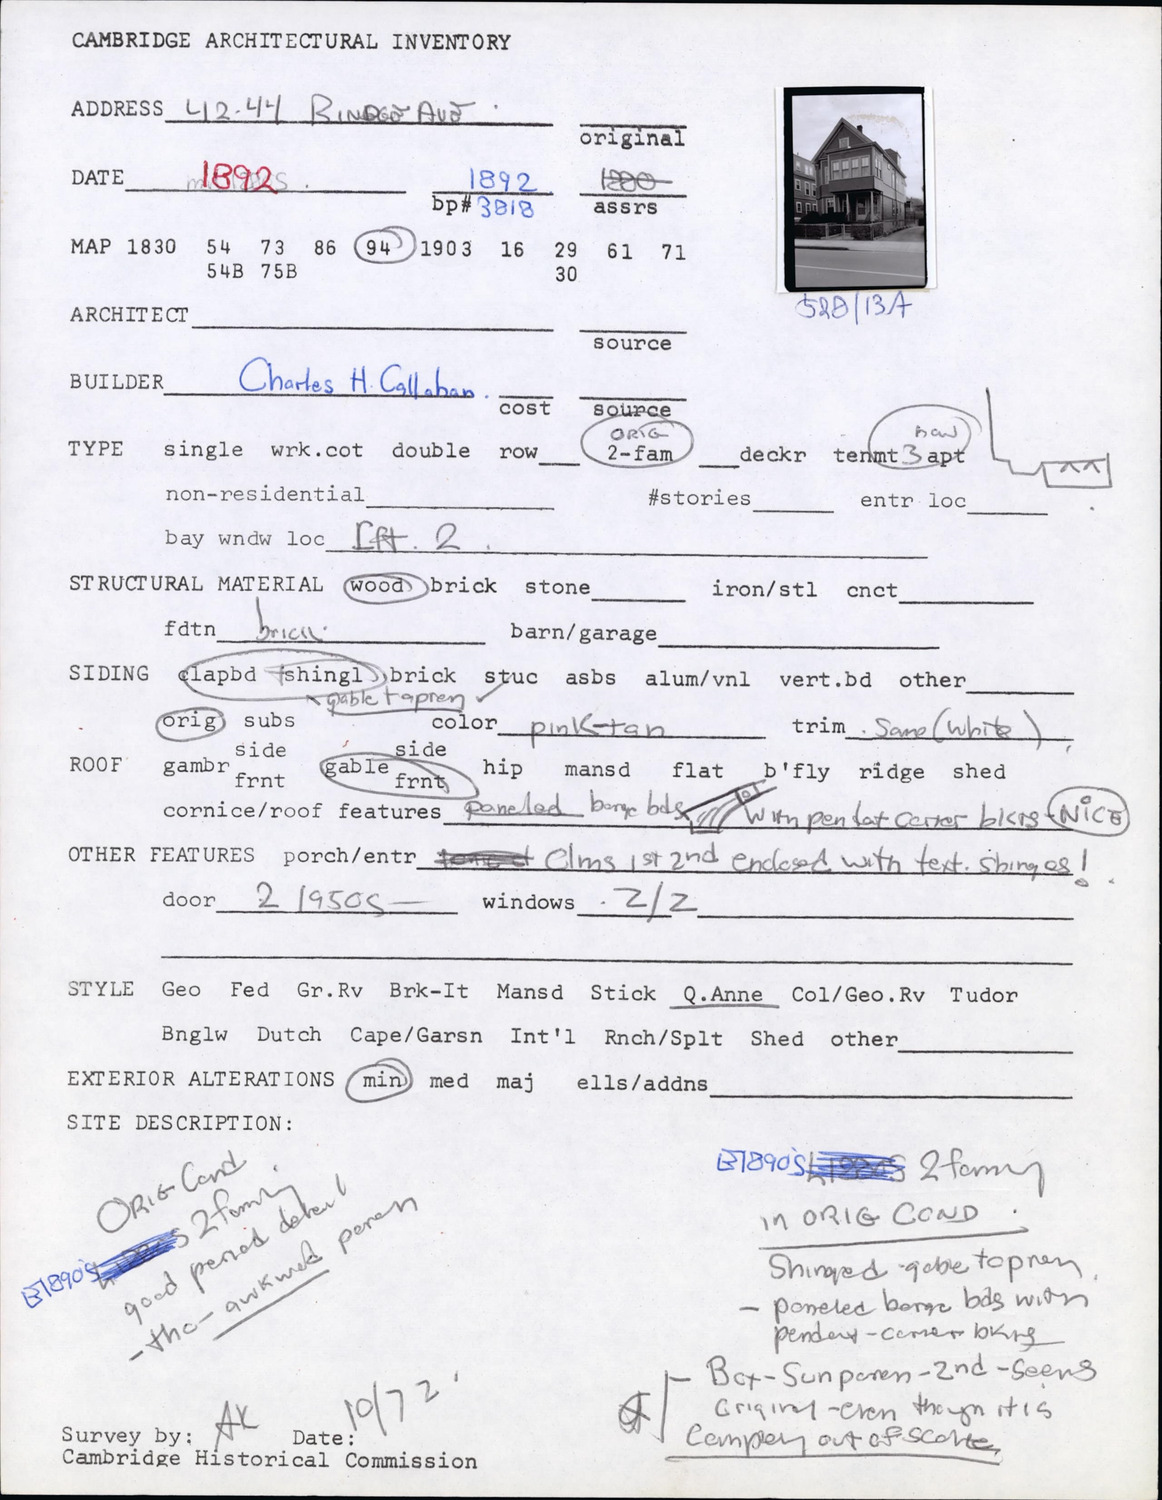 CAMBRIDGE ARCHITECTURAL INVENTORY
ADDRESS 42-44 RINDGE AVE original
DATE 1892 1892 1880
bp# 3818 assrs
MAP 1830 54 73 86 94 1903 16 29 61 71
54B 75B 30
528/13A
ARCHITECT
source
BUILDER Charles H. Callahan.
cost source
ORIG now
TYPE single wrk.cot double row 2-fam deckr tenmt 3 apt
non-residential #stories entr loc
bay wndw loc Lft. 2
STRUCTURAL MATERIAL wood brick stone iron/stl cnct
fdtn brick barn/garage
SIDING clapbd + shingl brick stuc asbs alum/vnl vert.bd other
gable + apren
orig subs color pink-tan trim Same (white)
side side
ROOF gambr gable hip mansd flat b'fly ridge shed
frnt frnt
cornice/roof features paneled barge bds with pendat corner bkts - NICE
OTHER FEATURES porch/entr clms 1st 2nd enclosed with text. shingles!
door 2 1950s windows 2/2
STYLE Geo Fed Gr.Rv Brk-It Mansd Stick Q.Anne Col/Geo.Rv Tudor
Bnglw Dutch Cape/Garsn Int'l Rnch/Splt Shed other
EXTERIOR ALTERATIONS min med maj ells/addns
SITE DESCRIPTION:
ORIG Cond
1890's 2 family
good period detail
- tho - awkwrd
1890's 2 family
in ORIG COND.
Shinged gable + apren
- paneled barge bds with
pendent - corner bkts
- Box - Sun - 2nd - seems
original - even though it is
out of scale
Survey by: AK Date: 10/72
Cambridge Historical Commission